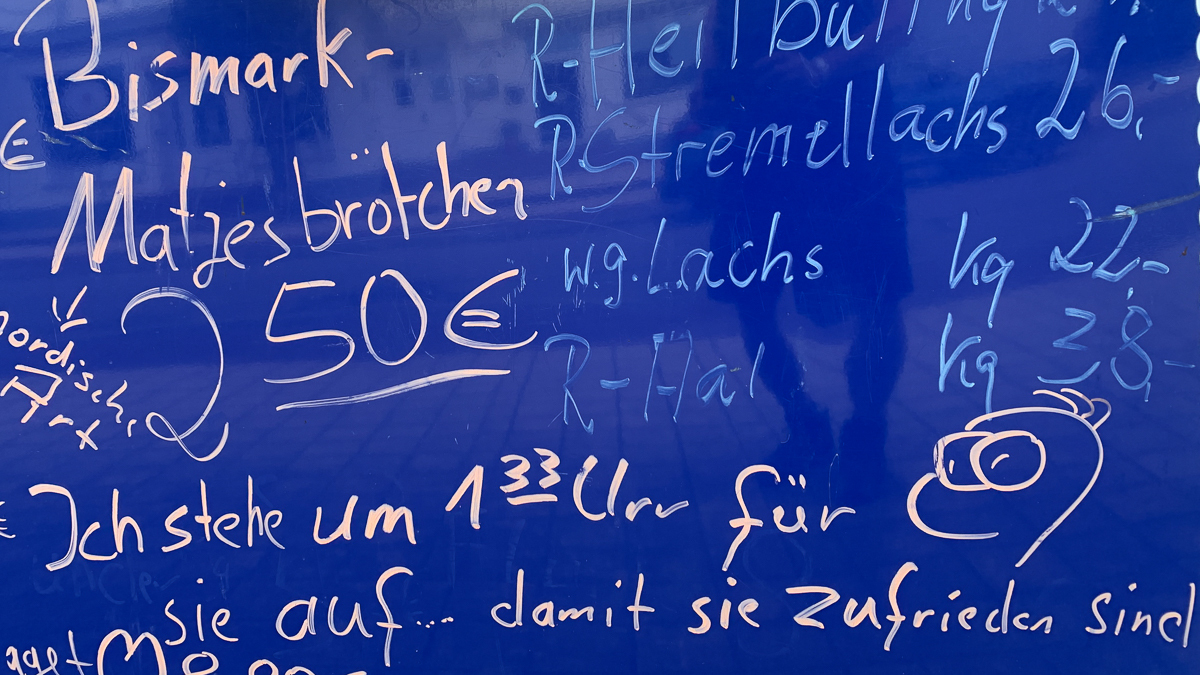 Bismark-
€
Matjesbrötchen
2 50 €
R-Heilbutt kg
R Stremellachs 26,-
w.g. Lachs kg 22,-
R-Hal kg 38,-
Ich stehe um 1 33 Urr für
sie auf... damit sie zufrieden sind